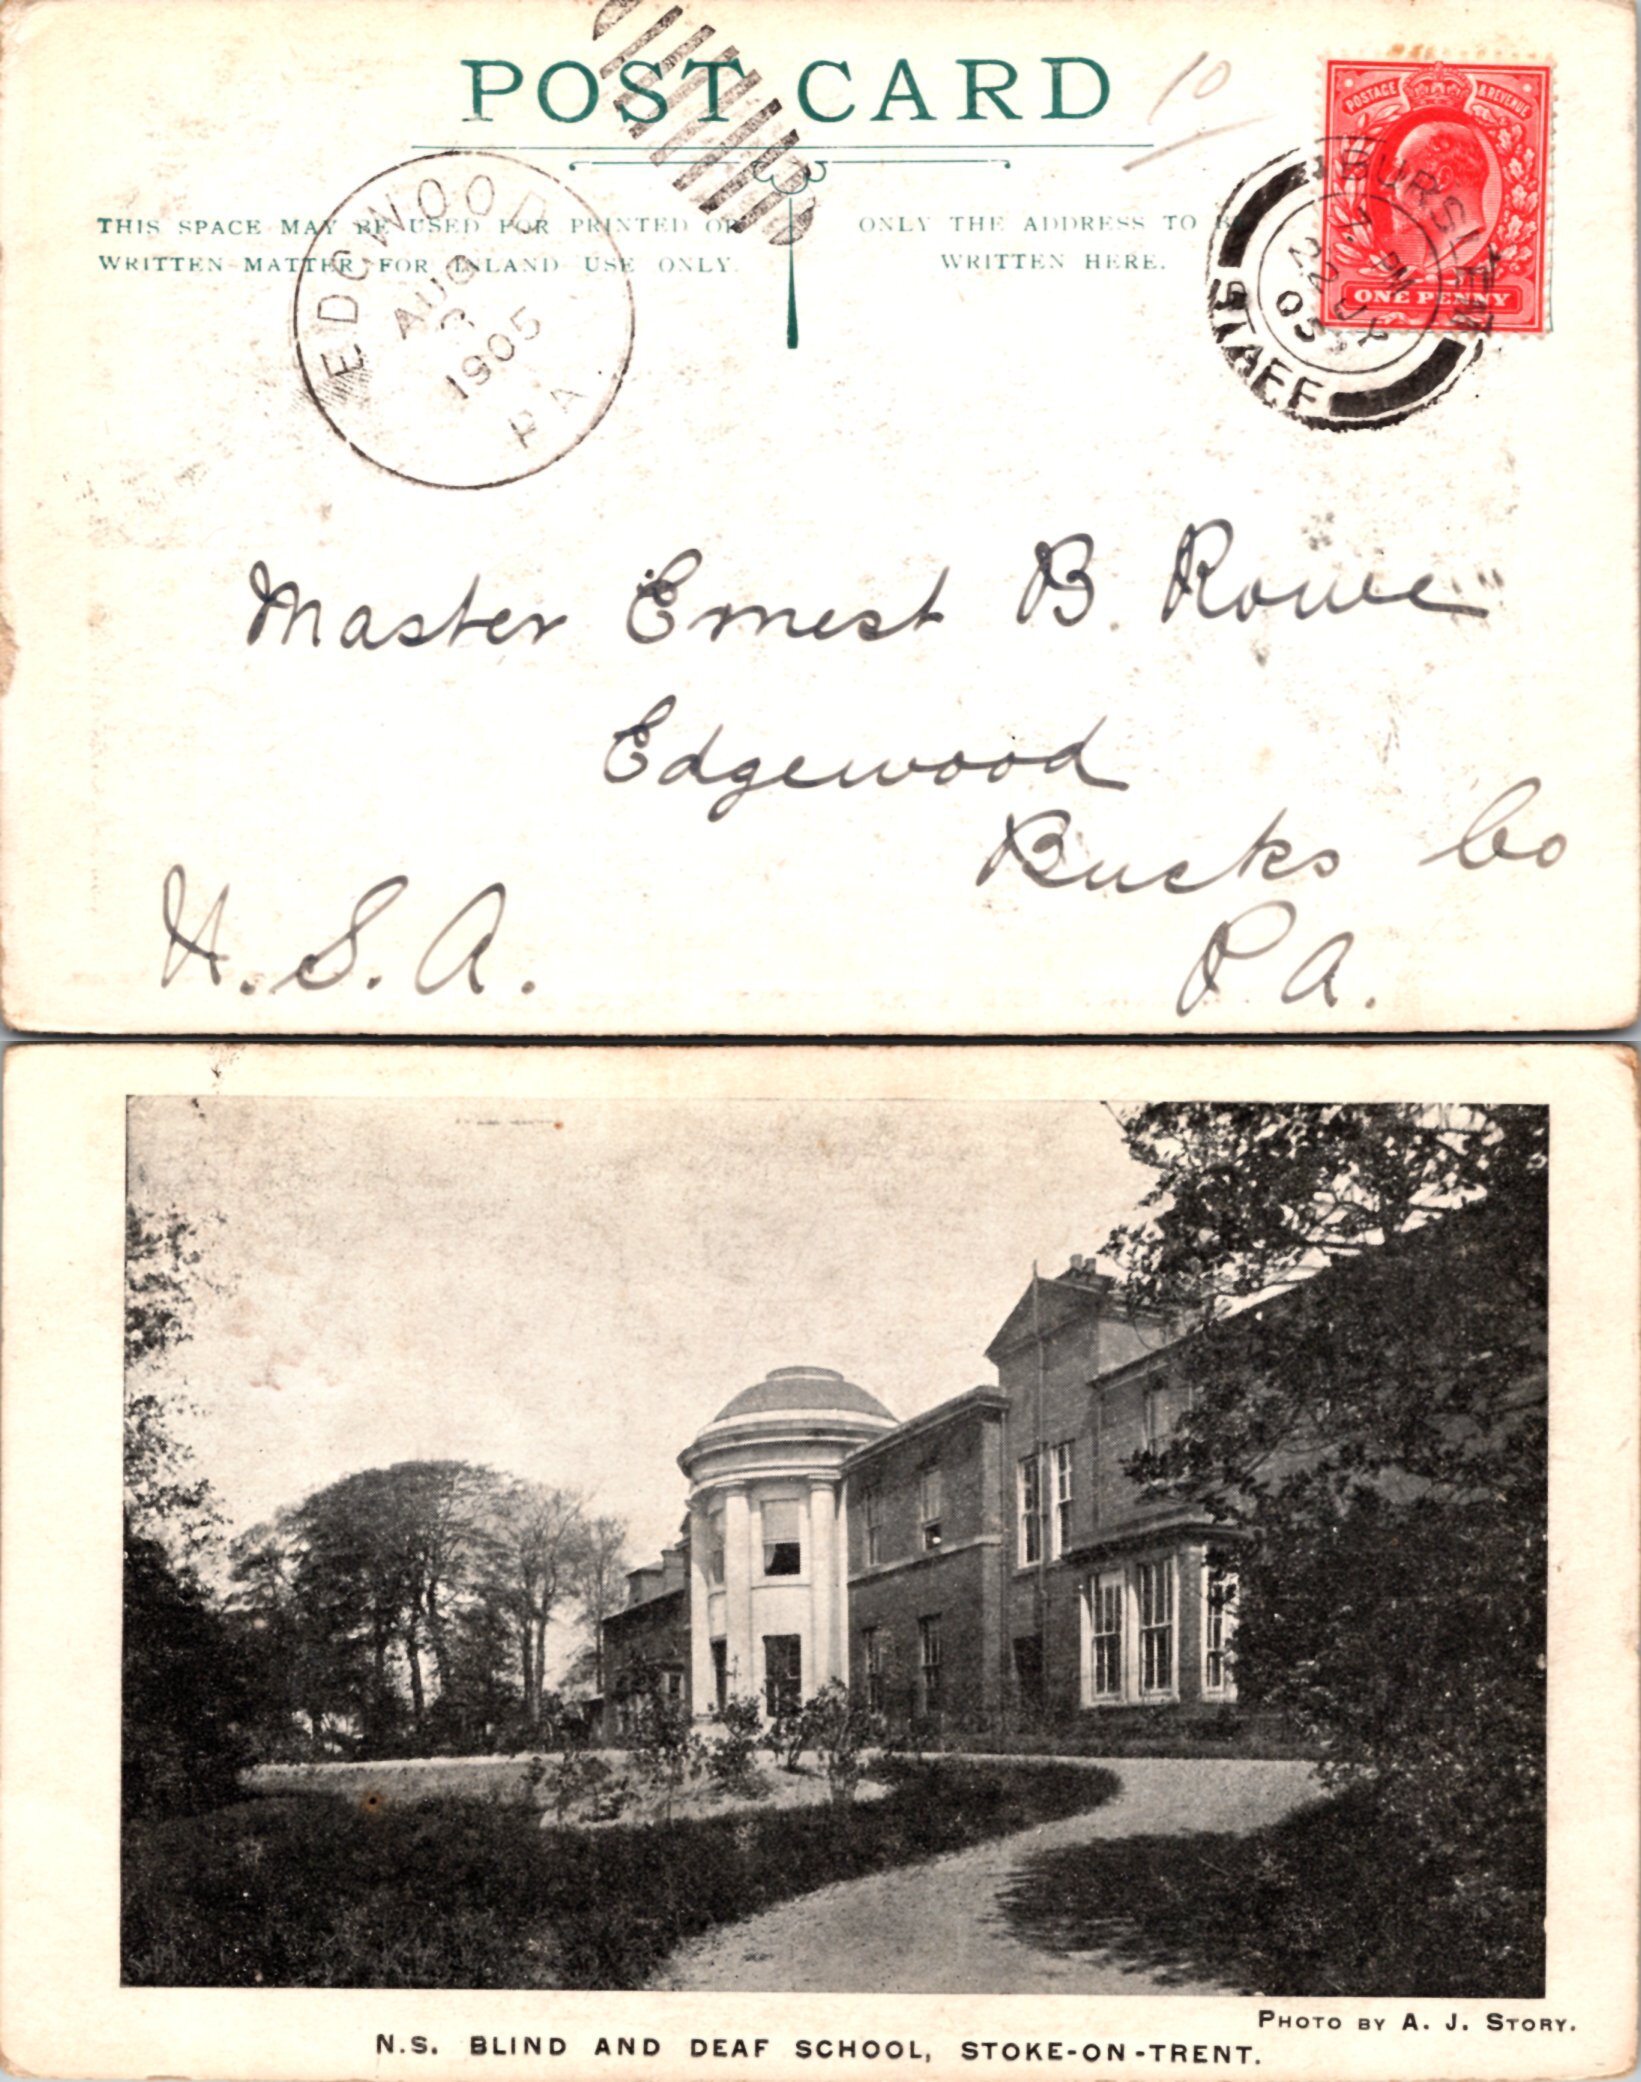 POST CARD
10
POSTAGE & REVENUE
ONE PENNY
BURSLEM
7. PM
22 JY
05
STAFF
EDGEWOOD
AUG
3
1905
PA
THIS SPACE MAY BE USED FOR PRINTED OR
WRITTEN MATTER FOR INLAND USE ONLY.
ONLY THE ADDRESS TO BE
WRITTEN HERE.
Master Ernest B. Rowe
Edgewood
Bucks Co
P A.
U. S. A.
PHOTO BY A. J. STORY.
N.S. BLIND AND DEAF SCHOOL, STOKE-ON-TRENT.